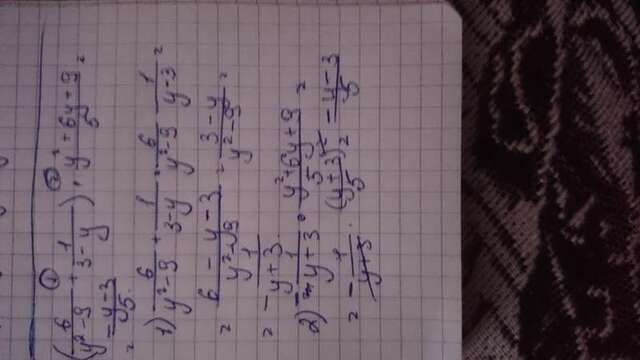 ① ②
(6/(y²-9) + 1/(3-y)) · (y²+6y+9)/5 =
= (-y-3)/5.
1) 6/(y²-9) + 1/(3-y) = 6/(y²-9) - 1/(y-3) =
= (6-y-3)/(y²-9) = (3-y)/(y²-9) =
= - 1/(y+3).
2) - 1/(y+3) · (y²+6y+9)/5 =
= - 1/(y+3) · (y+3)²/5 = (-y-3)/5